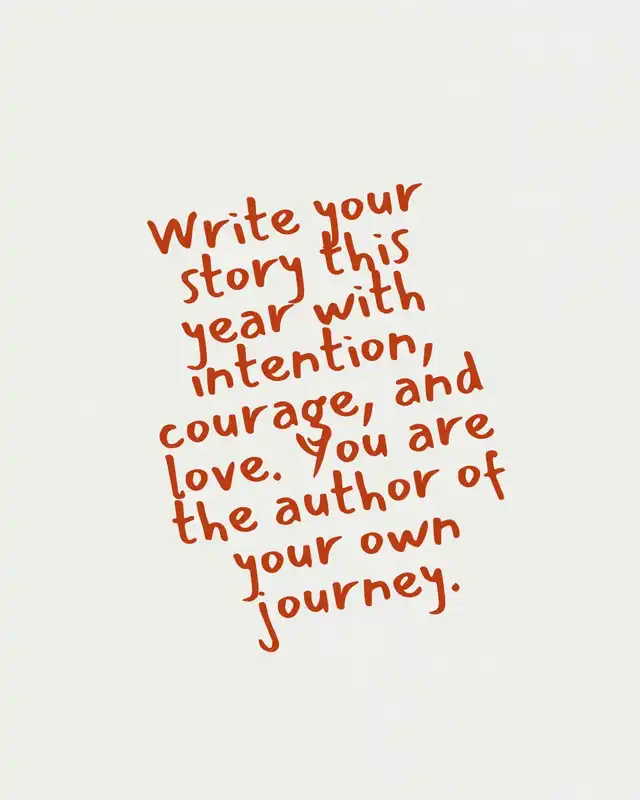 Write your
story this
year with
intention,
courage, and
love. You are
the author of
your own
journey.